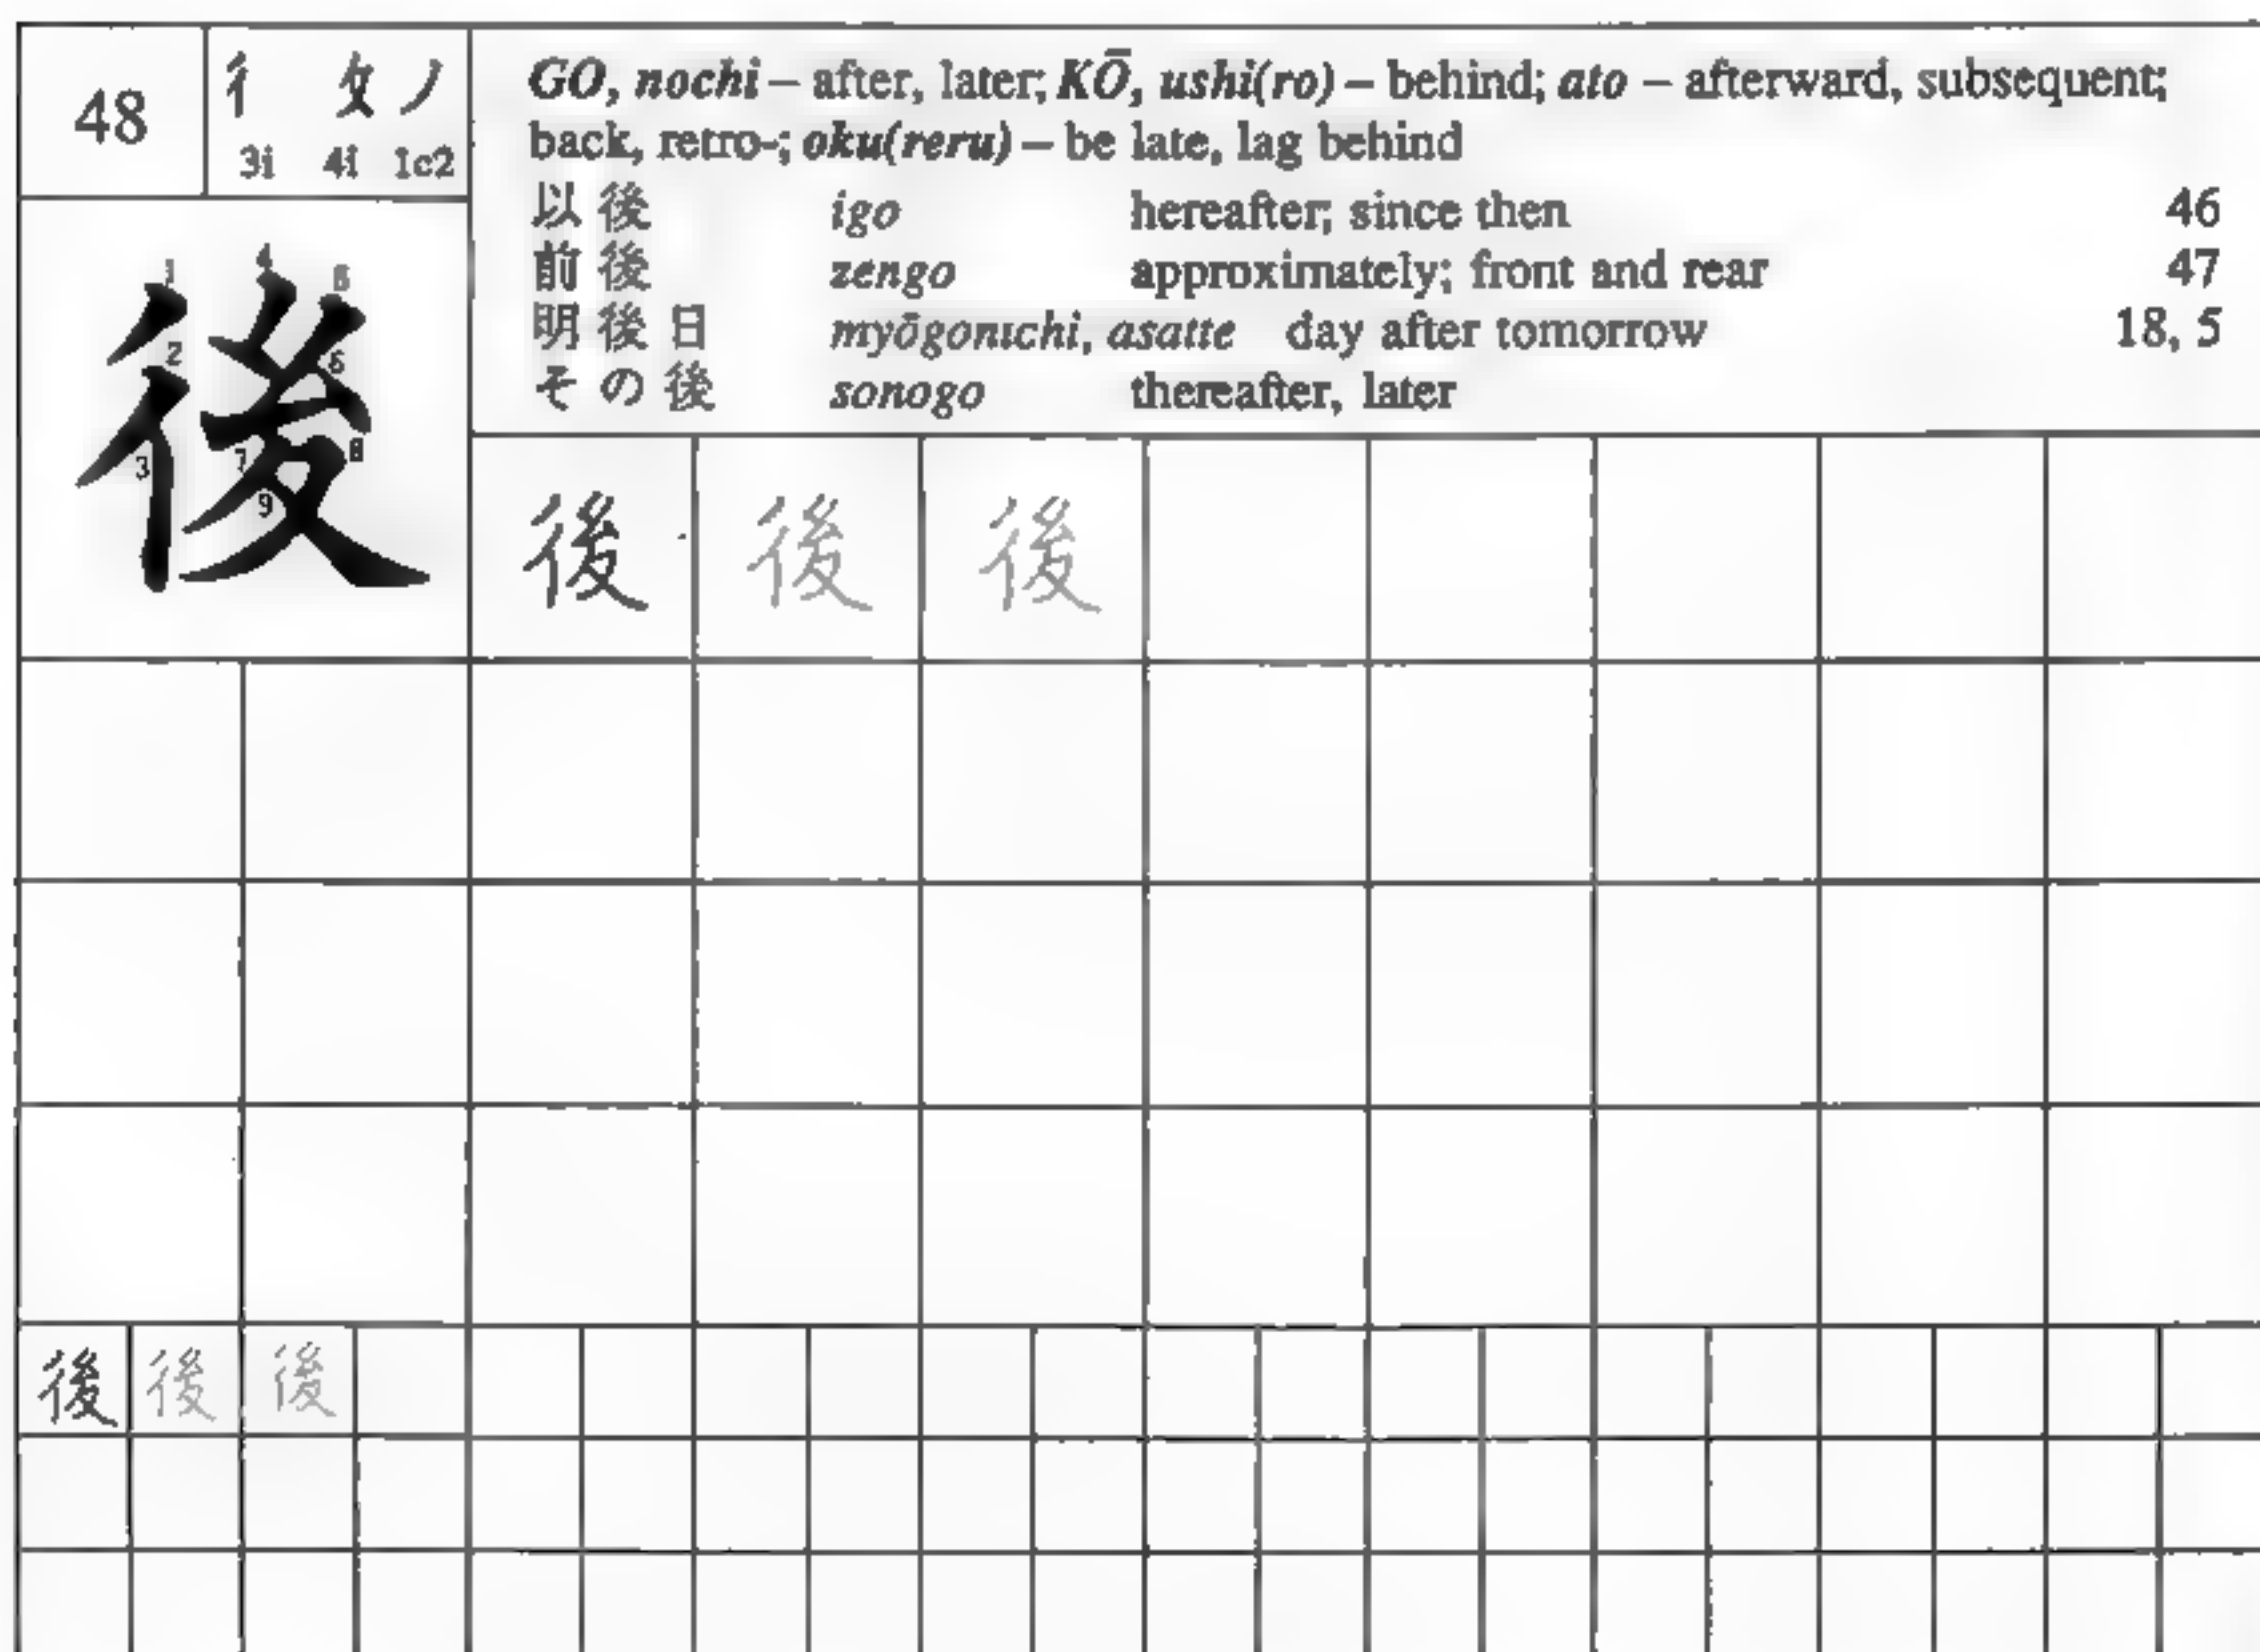 48
彳 攵 ノ
3i 4i 1c2
GO, nochi – after, later; KŌ, ushi(ro) – behind; ato – afterward, subsequent;
back, retro-; oku(reru) – be late, lag behind
以後 igo hereafter; since then 46
前後 zengo approximately; front and rear 47
明後日 myōgonichi, asatte day after tomorrow 18, 5
その後 sonogo thereafter, later
1 2 3 4 5 6 7 8 9
後
後 後 後
後 後 後